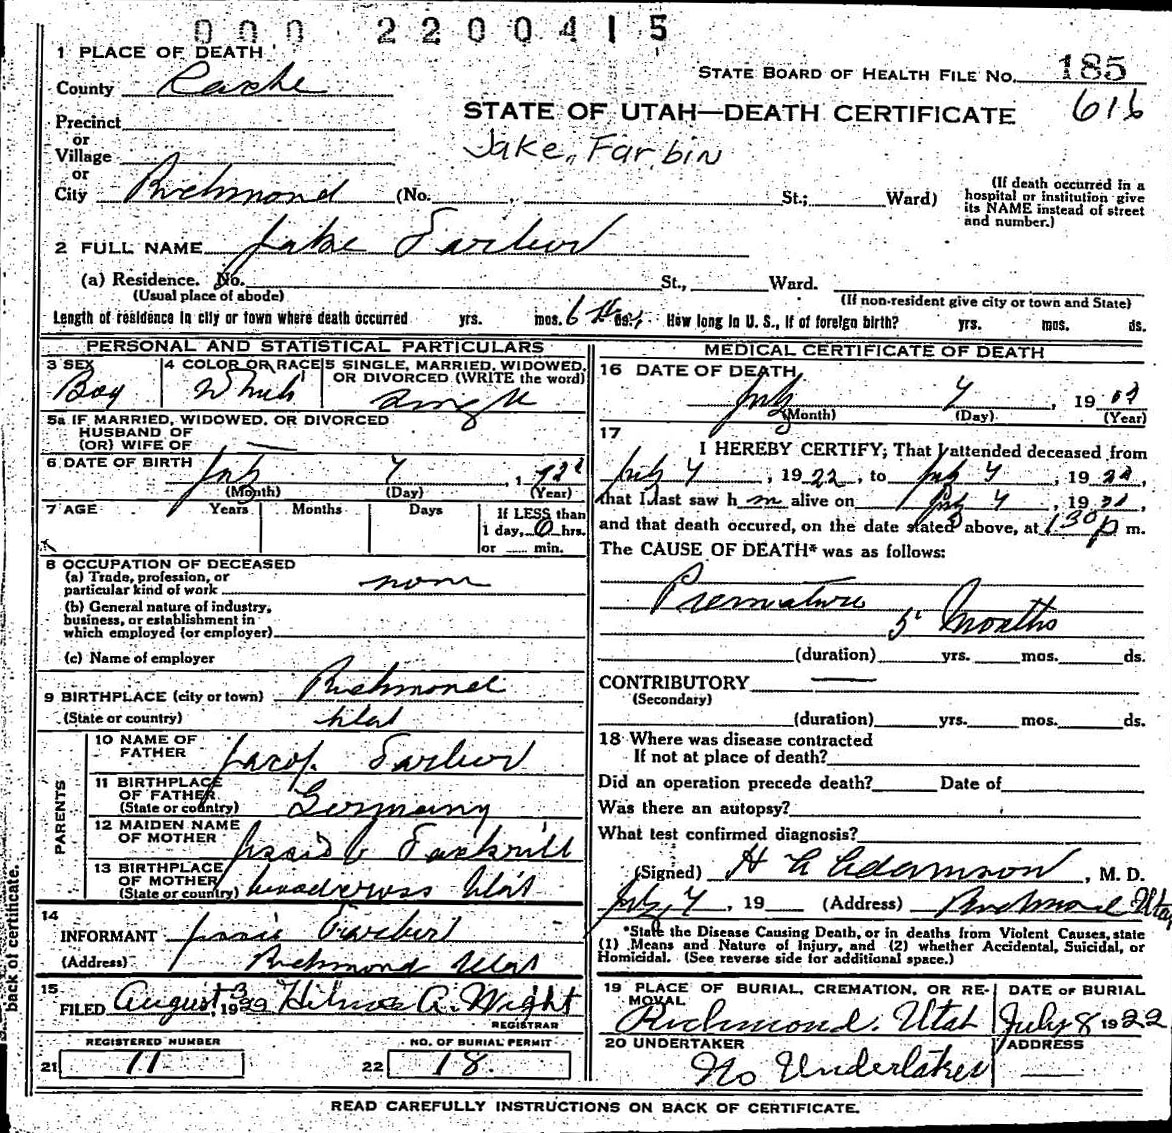 000 2200415
1 PLACE OF DEATH
STATE BOARD OF HEALTH FILE NO. 185
County Cache
616
STATE OF UTAH—DEATH CERTIFICATE
Precinct
or
Village
Jake, Farbin
or
City Richmond (No. St.; Ward)
(If death occurred in a
hospital or institution give
its NAME instead of street
and number.)
2 FULL NAME Jake
(a) Residence. No. St., Ward.
(Usual place of abode)
(If non-resident give city or town and State)
Length of residence in city or town where death occurred yrs. mos. 6 ds. How long in U. S., if of foreign birth? yrs. mos. ds.
PERSONAL AND STATISTICAL PARTICULARS
3 SEX
Boy
4 COLOR OR RACE
White
5 SINGLE, MARRIED, WIDOWED,
OR DIVORCED (WRITE the word)
Single
5a IF MARRIED, WIDOWED, OR DIVORCED
HUSBAND OF
(OR) WIFE OF
6 DATE OF BIRTH July 7, 1922
(Month) (Day) (Year)
7 AGE Years Months Days If LESS than
1 day, 6 hrs.
or min.
8 OCCUPATION OF DECEASED
(a) Trade, profession, or
particular kind of work none
(b) General nature of industry,
business, or establishment in
which employed (or employer)
(c) Name of employer
9 BIRTHPLACE (city or town) Richmond
(State or country) Utah
PARENTS
10 NAME OF
FATHER
11 BIRTHPLACE
OF FATHER
(State or country) Germany
12 MAIDEN NAME
OF MOTHER
13 BIRTHPLACE
OF MOTHER
(State or country) Woodcross Utah
14
INFORMANT Jessie
(Address) Richmond Utah
15
FILED August 3, 1922 A. Wright
REGISTRAR
REGISTERED NUMBER
21 11
NO. OF BURIAL PERMIT
22 18.
MEDICAL CERTIFICATE OF DEATH
16 DATE OF DEATH
July 7, 19
(Month) (Day) (Year)
17
I HEREBY CERTIFY; That I attended deceased from
July 7, 1922, to July 7, 1922,
that I last saw h m alive on July 7, 19
and that death occured, on the date stated above, at 1 30 p m.
The CAUSE OF DEATH* was as follows:
Premature
5 Months
(duration) yrs. mos. ds.
CONTRIBUTORY
(Secondary)
(duration) yrs. mos. ds.
18 Where was disease contracted
If not at place of death?
Did an operation precede death? Date of
Was there an autopsy?
What test confirmed diagnosis?
(Signed) Adamson, M. D.
July 7, 19 (Address) Richmond Utah
*State the Disease Causing Death, or in deaths from Violent Causes, state
(1) Means and Nature of Injury, and (2) whether Accidental, Suicidal, or
Homicidal. (See reverse side for additional space.)
19 PLACE OF BURIAL, CREMATION, OR RE-
MOVAL
Richmond. Utah
DATE OF BURIAL
July 8 1922
20 UNDERTAKER
No Undertaker
ADDRESS
READ CAREFULLY INSTRUCTIONS ON BACK OF CERTIFICATE.
back of certificate.